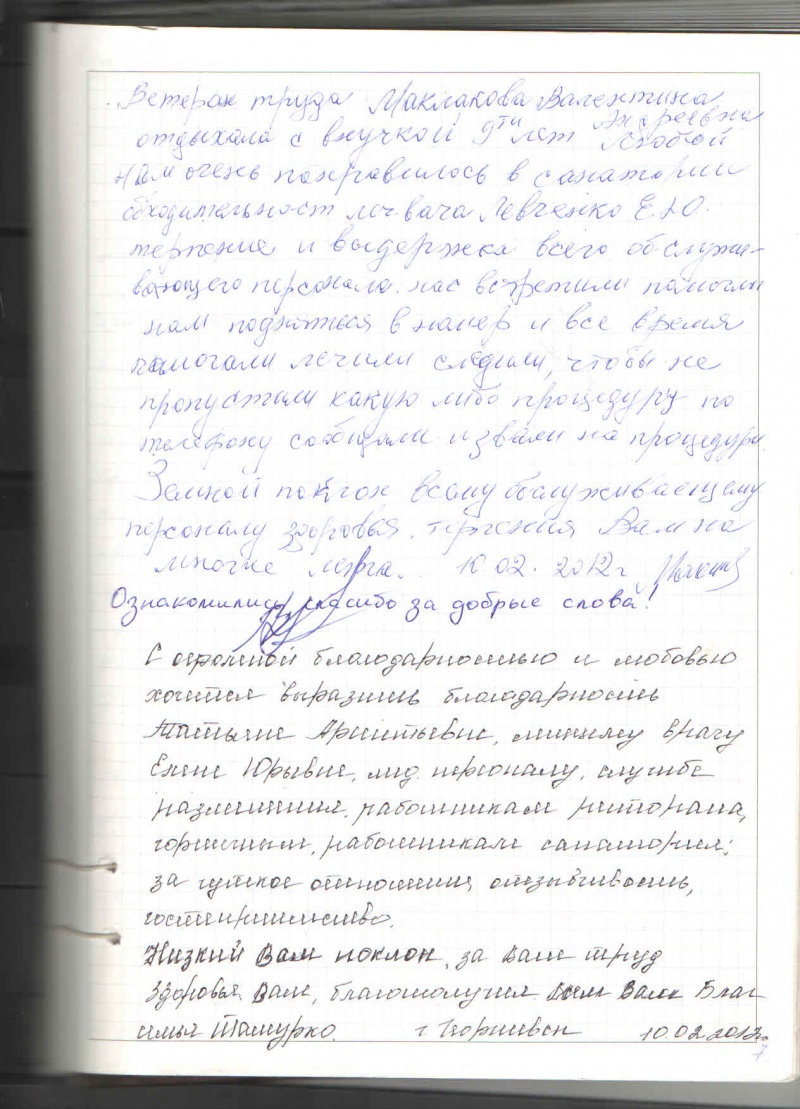 Ветеран труда Маклакова Валентина
Андреевна
отдыхала с внучкой 9ти лет Любой
Нам очень понравилось в санатории
обходительност леч врача Левченко Е.Ю.
терпение и выдержка всего обслужи-
вающего персонала. нас встретили помогли
нам подняться в номер и все время
помогали лечили следили, чтобы не
пропустили какую либо процедуру по
телефону сообщали и звали на процедуры.
Земной поклон всему обслуживаещему
персоналу здоровья, терпения Вам на
многие лета. 10.02.2012г
Ознакомились, спасибо за добрые слова!
С огромной благодарностью и любовью
хочется выразить благодарность
Татьяне Арсентьевне, лечащему врачу
Елене Юрьевне, мед. персоналу, службе
размещения, работникам ресторана,
горничным, работникам санатория;
за чуткое отношение, отзывчивость,
гостеприимство.
Низкий Вам поклон, за Ваш труд
Здоровья Вам, благополучия
семья г. Георгиевск 10.02.2012г.
7